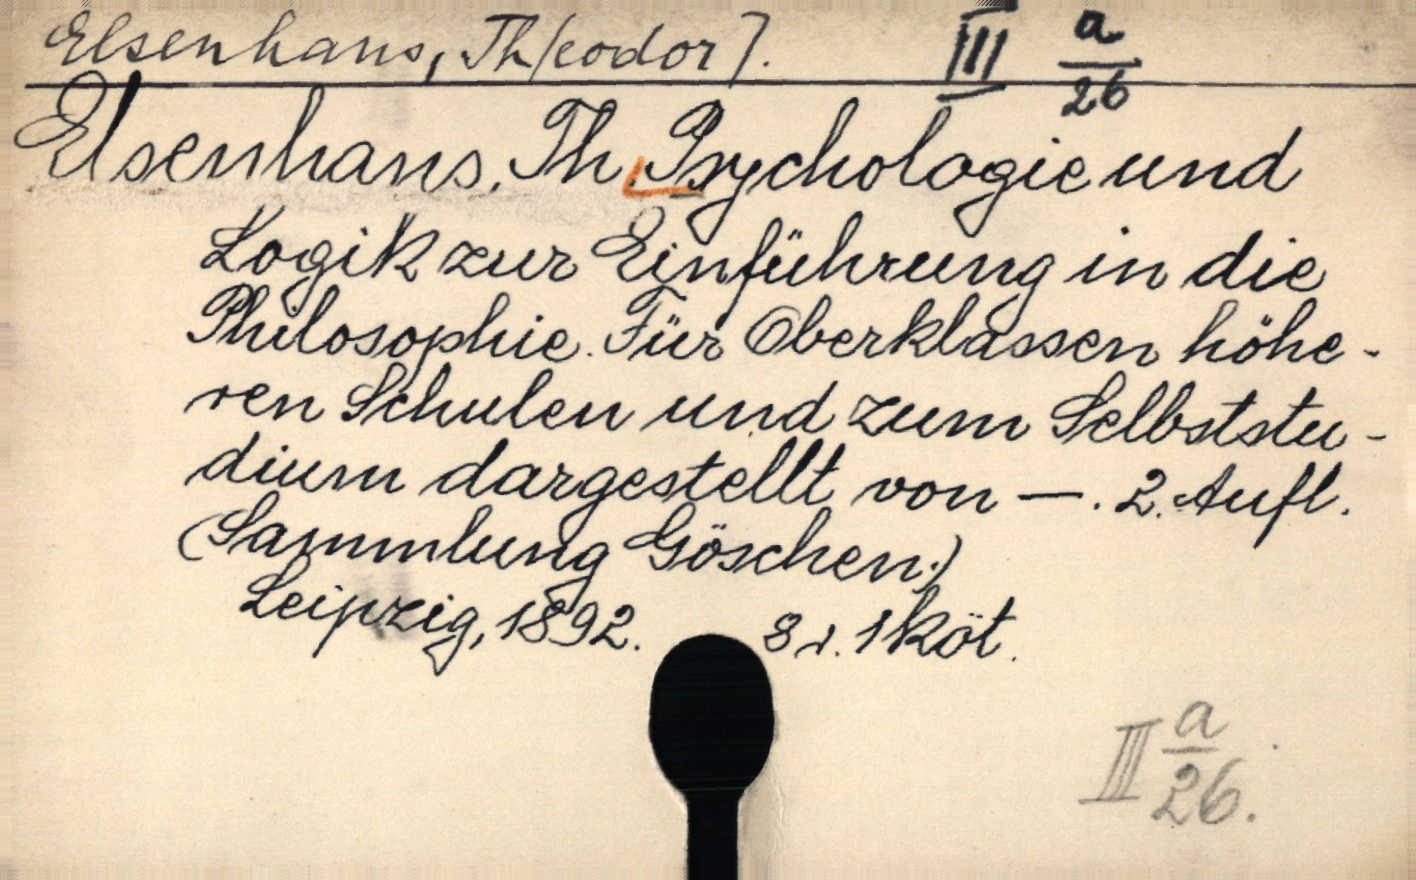 Elsenhans, Th[eodor]. III a/26
Elsenhans, Th. Psychologie und
Logik zur Einführung in die
Philosophie. Für Oberklassen höhe-
ren Schulen und zum Selbststu-
dium dargestellt von —. 2. Aufl.
(Sammlung Göschen.)
Leipzig, 1892. 8 r. 1 köt.
III a/26.